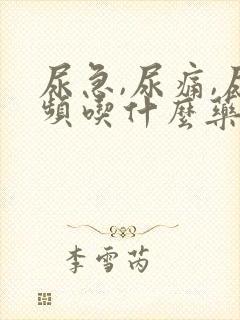 尿急,尿痛,
頻喫什麼藥
李雪芮